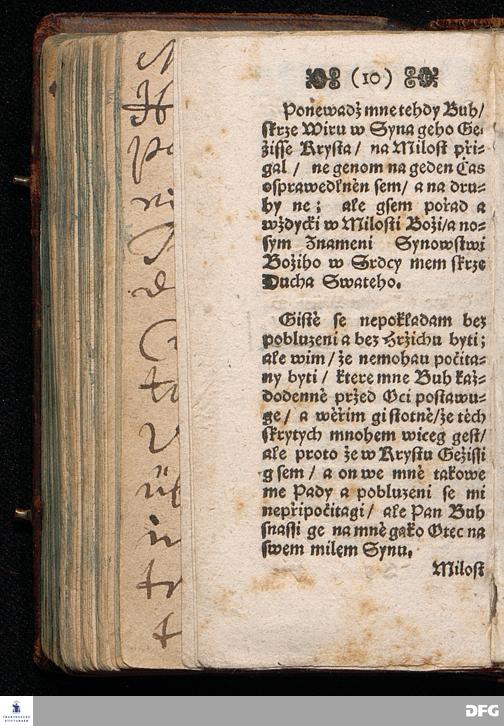 (10)
Poněwadž mne tehdy Buh/
skrze Wiru w Syna geho Ge-
žisse Krysta / na Milost při-
gal / ne genom na geden Čas
osprawedlněn sem / a na dru-
hy ne ; ale gsem pořad a
wždycki w Milosti Boži / a no-
sym Znameni Synowstwi
Božiho w Srdcy mem skrze
Ducha Swateho.
Gistě se nepokladam bez
pobluzeni a bez Hržichu byti ;
ale wim / že nemohau počita-
ny byti / ktere mne Buh kaž-
dodenně před Oci postawu-
ge / a wěřim gistotně / že těch
skrytych mnohem wiceg gest /
ale proto že w Krystu Gežissi
gsem / a on we mně takowe
me Pady a pobluzeni se mi
nepřipočitagi / ale Pan Buh
snassi ge na mně gako Otec na
swem milem Synu.
Milost
DFG